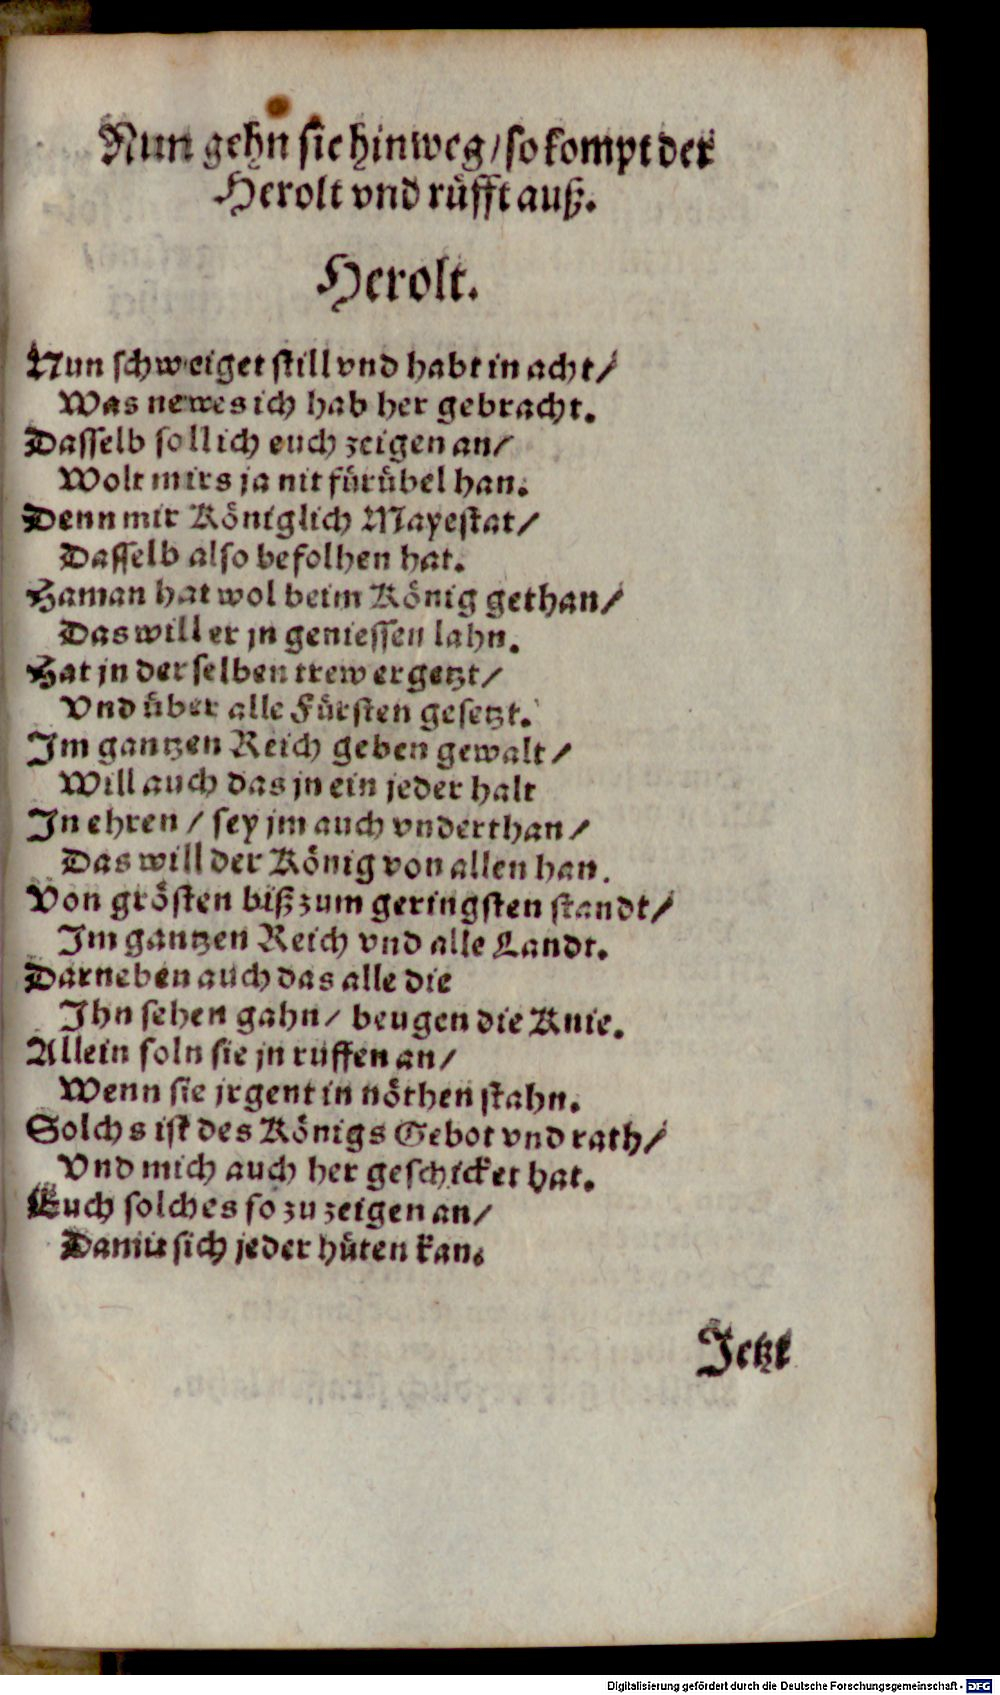 Nun gehn sie hinweg / so kompt der
Herolt vnd rüfft auß.
Herolt.
Nun schweiget still vnd habt in acht /
Was newes ich hab her gebracht.
Dasselb soll ich euch zeigen an /
Wolt mirs ja nit für übel han.
Denn mir Königlich Mayestat /
Dasselb also befolhen hat.
Haman hat wol beim König gethan /
Das will er jn geniessen lahn.
Hat jn derselben trew ergetzt /
Vnd über alle Fürsten gesetzt.
Im gantzen Reich geben gewalt /
Will auch das jn ein jeder halt
In ehren / sey jm auch vnderthan /
Das will der König von allen han.
Von grösten biß zum geringsten standt /
Im gantzen Reich vnd alle Landt.
Darneben auch das alle die
Ihn sehen gahn / beugen die Knie.
Allein soln sie jn ruffen an /
Wenn sie jrgent in nöthen stahn.
Solchs ist des Königs Gebot vnd rath /
Vnd mich auch her geschicket hat.
Euch solches so zu zeigen an /
Damit sich jeder hüten kan.
Jetzt
Digitalisierung gefördert durch die Deutsche Forschungsgemeinschaft - DFG